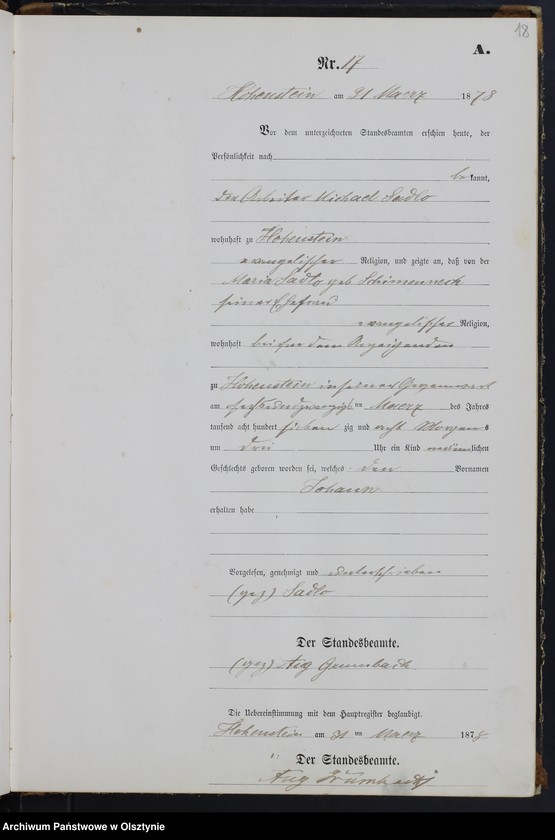 18
A.
Nr. 17
Hohenstein am 31 Maerz 1878
Vor dem unterzeichneten Standesbeamten erschien heute, der
Persönlichkeit nach
bekannt,
der Arbeiter Michael Sadlo
wohnhaft zu Hohenstein
evangelischer Religion, und zeigte an, daß von der
Maria Sadlo geb
seiner Ehefrau
evangelischer Religion,
wohnhaft bei ihm dem Anzeigenden
zu Hohenstein in seiner Gegenwart
am ten Maerz des Jahres
tausend acht hundert sieben zig und acht Morgens
um drei Uhr ein Kind männlichen
Geschlechts geboren worden sei, welches den Vornamen
Johann
erhalten habe
Vorgelesen, genehmigt und unterschrieben
(gez) Sadlo
Der Standesbeamte.
(gez) Aug
Die Uebereinstimmung mit dem Hauptregister beglaubigt.
Hohenstein am 31 ten Maerz 1878
Der Standesbeamte.
Aug
Archiwum Państwowe w Olsztynie